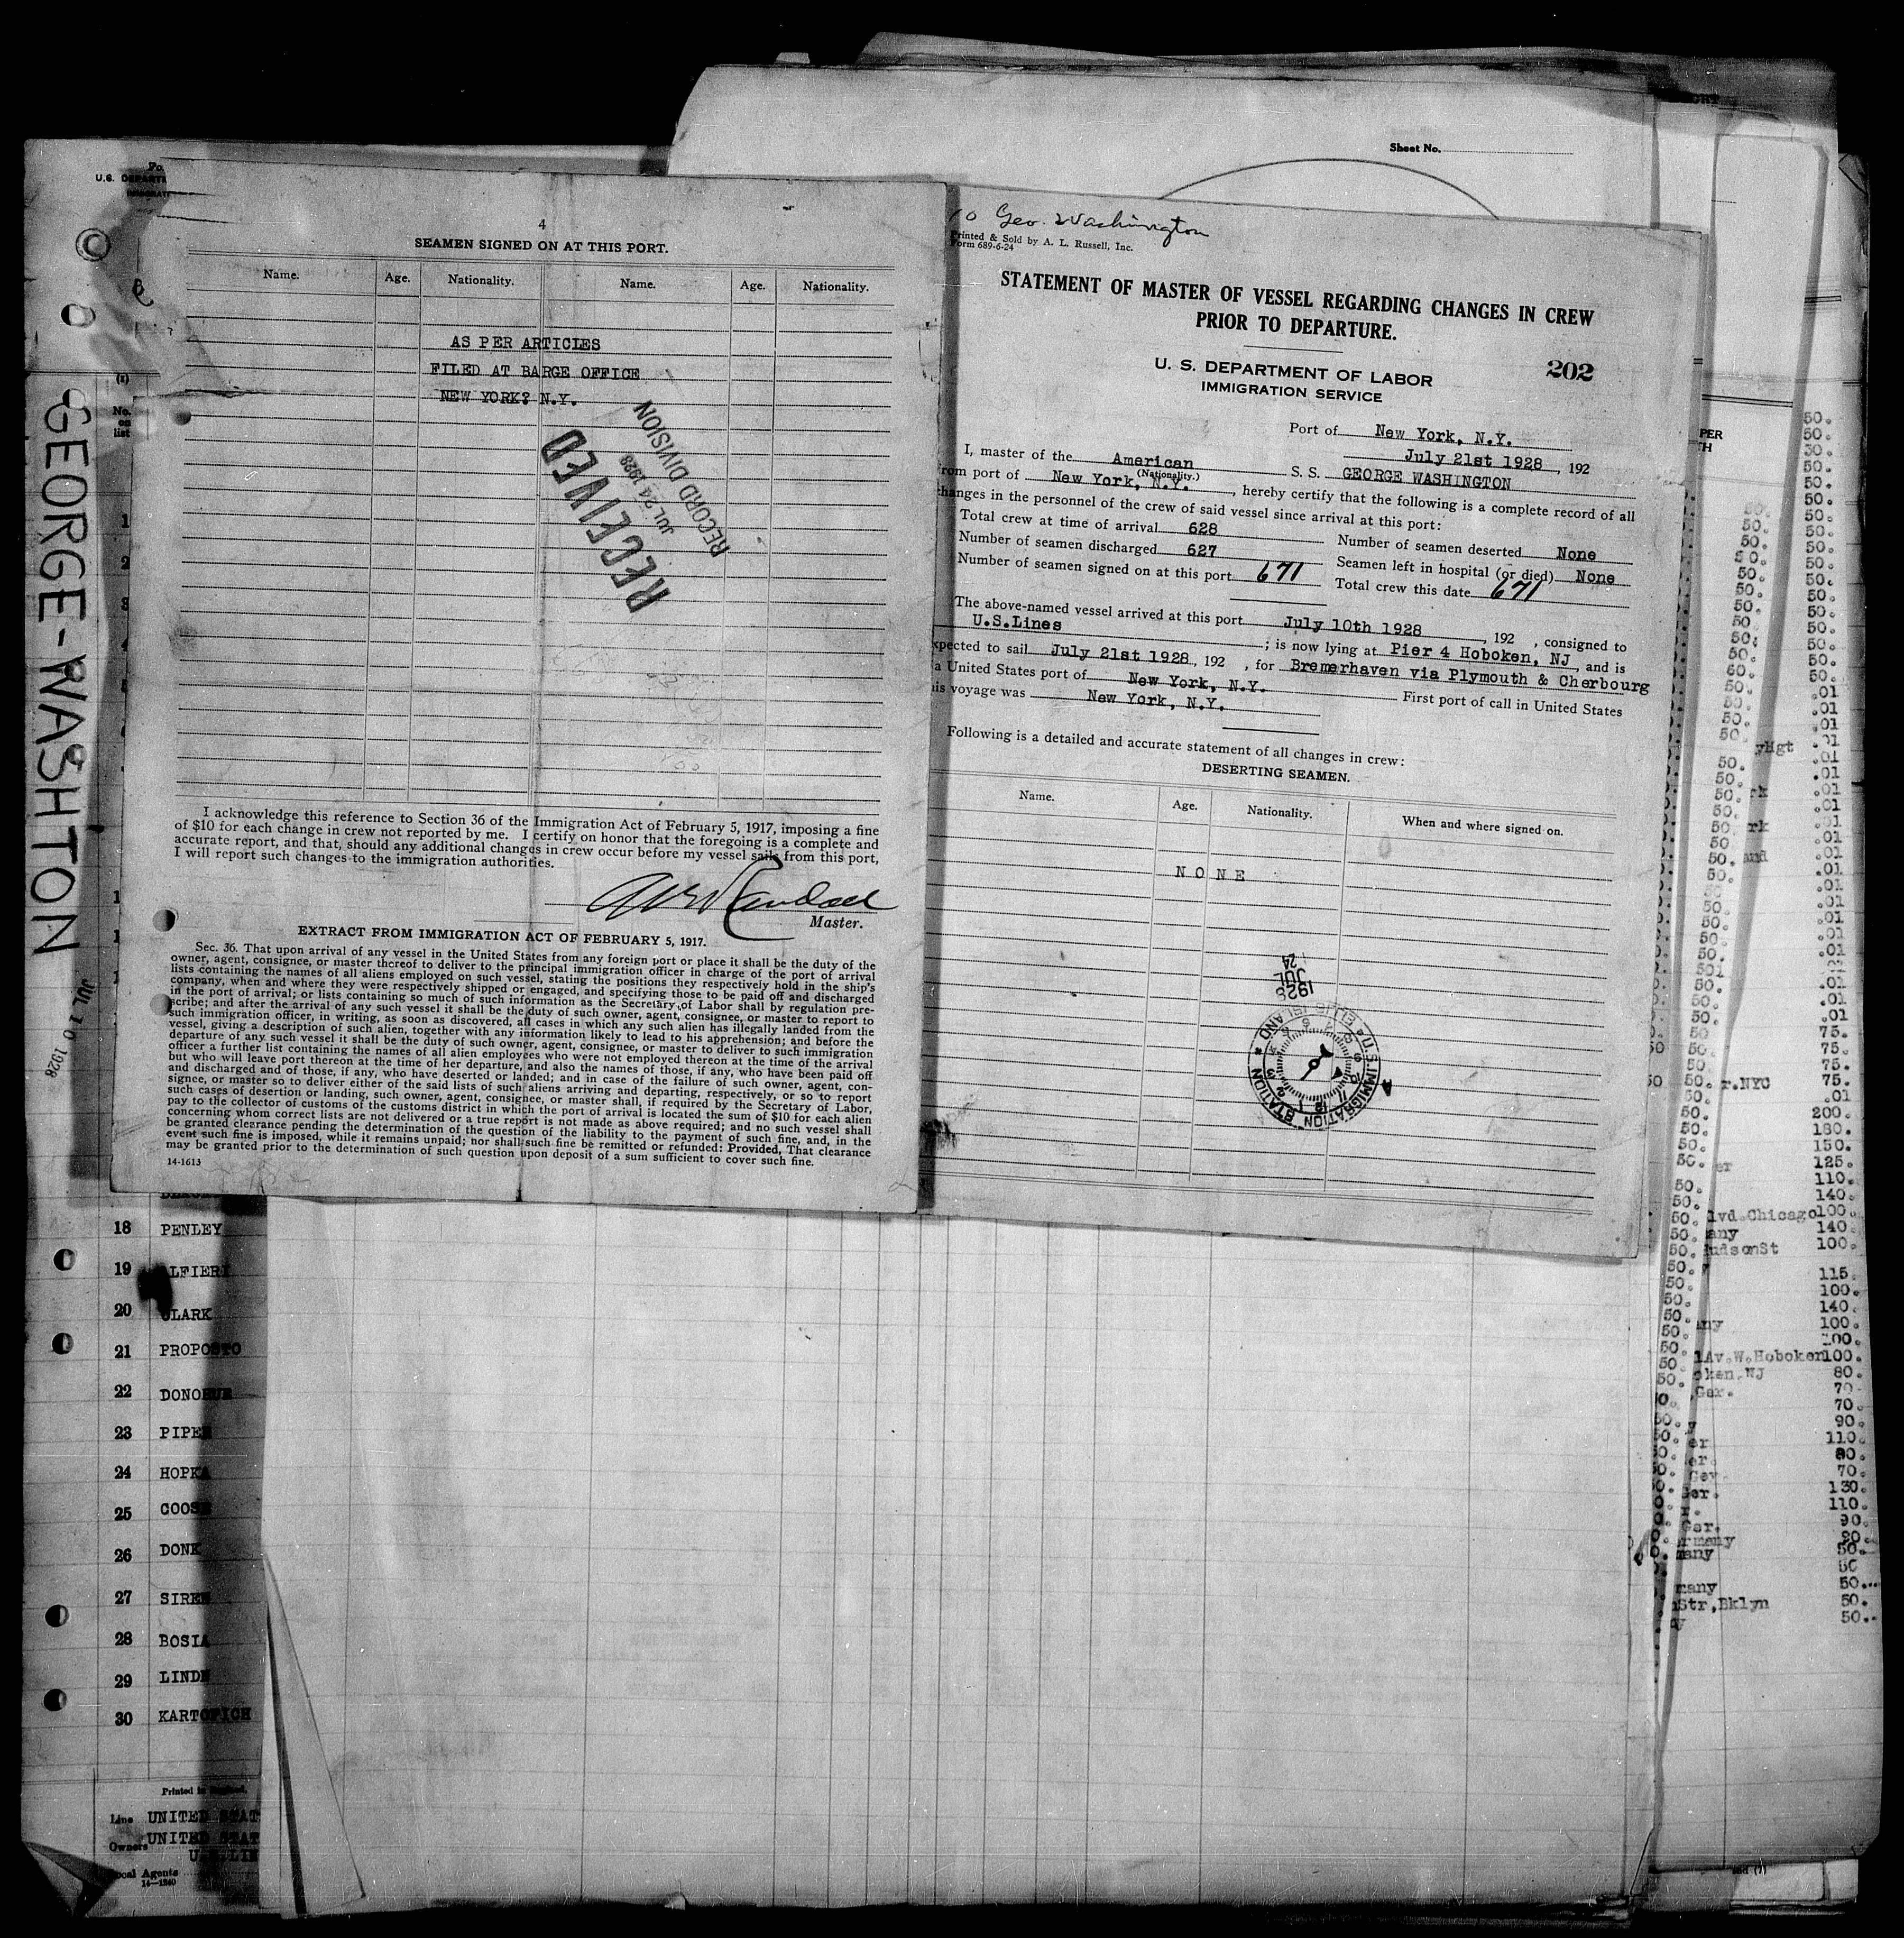 Sheet No.
U.S. DEPARTM
GEORGE-WASHTON
JUL 10 1928
(1)
No.
on
list
4
SEAMEN SIGNED ON AT THIS PORT.
Name. Age. Nationality. Name. Age. Nationality.
AS PER ARTICLES
FILED AT BARGE OFFICE
NEW YORK? N.Y.
RECEIVED
JUL 24 1928
RECORD DIVISION
I acknowledge this reference to Section 36 of the Immigration Act of February 5, 1917, imposing a fine
of $10 for each change in crew not reported by me. I certify on honor that the foregoing is a complete and
accurate report, and that, should any additional changes in crew occur before my vessel sails from this port,
I will report such changes to the immigration authorities.
Master.
EXTRACT FROM IMMIGRATION ACT OF FEBRUARY 5, 1917.
Sec. 36. That upon arrival of any vessel in the United States from any foreign port or place it shall be the duty of the
owner, agent, consignee, or master thereof to deliver to the principal immigration officer in charge of the port of arrival
lists containing the names of all aliens employed on such vessel, stating the positions they respectively hold in the ship's
company, when and where they were respectively shipped or engaged, and specifying those to be paid off and discharged
in the port of arrival; or lists containing so much of such information as the Secretary of Labor shall by regulation pre-
scribe; and after the arrival of any such vessel it shall be the duty of such owner, agent, consignee, or master to report to
such immigration officer, in writing, as soon as discovered, all cases in which any such alien has illegally landed from the
vessel, giving a description of such alien, together with any information likely to lead to his apprehension; and before the
departure of any such vessel it shall be the duty of such owner, agent, consignee, or master to deliver to such immigration
officer a further list containing the names of all alien employees who were not employed thereon at the time of the arrival
but who will leave port thereon at the time of her departure, and also the names of those, if any, who have been paid off
and discharged and of those, if any, who have deserted or landed; and in case of the failure of such owner, agent, con-
signee, or master so to deliver either of the said lists of such aliens arriving and departing, respectively, or so to report
such cases of desertion or landing, such owner, agent, consignee, or master shall, if required by the Secretary of Labor,
pay to the collector of customs of the customs district in which the port of arrival is located the sum of $10 for each alien
concerning whom correct lists are not delivered or a true report is not made as above required; and no such vessel shall
be granted clearance pending the determination of the question of the liability to the payment of such fine, and, in the
event such fine is imposed, while it remains unpaid; nor shall such fine be remitted or refunded: Provided, That clearance
may be granted prior to the determination of such question upon deposit of a sum sufficient to cover such fine.
14-1613
Geo. Washington
Printed & Sold by A. L. Russell, Inc.
Form 689-6-24
STATEMENT OF MASTER OF VESSEL REGARDING CHANGES IN CREW
PRIOR TO DEPARTURE.
U. S. DEPARTMENT OF LABOR
IMMIGRATION SERVICE
202
Port of New York, N.Y.
July 21st 1928, 192
I, master of the American S. S. GEORGE WASHINGTON
(Nationality.)
from port of New York, N.Y., hereby certify that the following is a complete record of all
changes in the personnel of the crew of said vessel since arrival at this port:
Total crew at time of arrival 628 Number of seamen deserted None
Number of seamen discharged 627 Seamen left in hospital (or died) None
Number of seamen signed on at this port 671 Total crew this date 671
The above-named vessel arrived at this port July 10th 1928, 192 , consigned to
U.S.Lines ; is now lying at Pier 4 Hoboken, NJ, and is
xpected to sail July 21st 1928, 192 , for Bremerhaven via Plymouth & Cherbourg
a United States port of New York, N.Y. First port of call in United States
is voyage was New York, N.Y.
Following is a detailed and accurate statement of all changes in crew:
DESERTING SEAMEN.
Name. Age. Nationality. When and where signed on.
NONE
1928
JUL
24
U.S. IMMIGRATION STATION * ELLIS ISLAND
18 PENLEY
19 ALFIERI
20 CLARK
21 PROPOSTO
22 DONOHUE
23 PIPE
24 HOPKA
25 GOOSE
26 DONK
27 SIREN
28 BOSIA
29 LINDE
30 KARTOFICH
Line UNITED STAT
Owners UNITED STAT
Local Agents
14-1240
yHgt
r.NYC
lvd.Chicago 100.
any 140.
udsonSt 100.
lAv.W.Hoboken 100.
ken,NJ 80.
Ger. 70.
many 50.
Str,Bklyn 50.